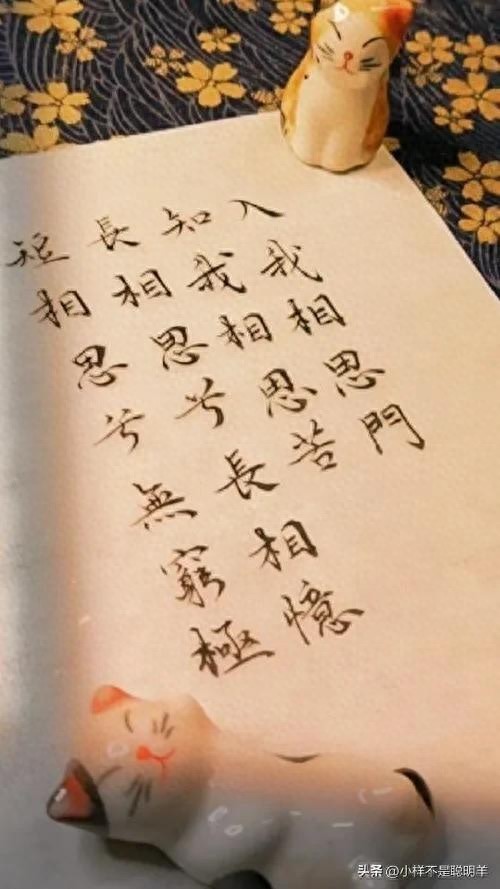 入我相思門
知我相思苦
長相思兮長相憶
短相思兮無窮極
头条 @小样不是聪明羊